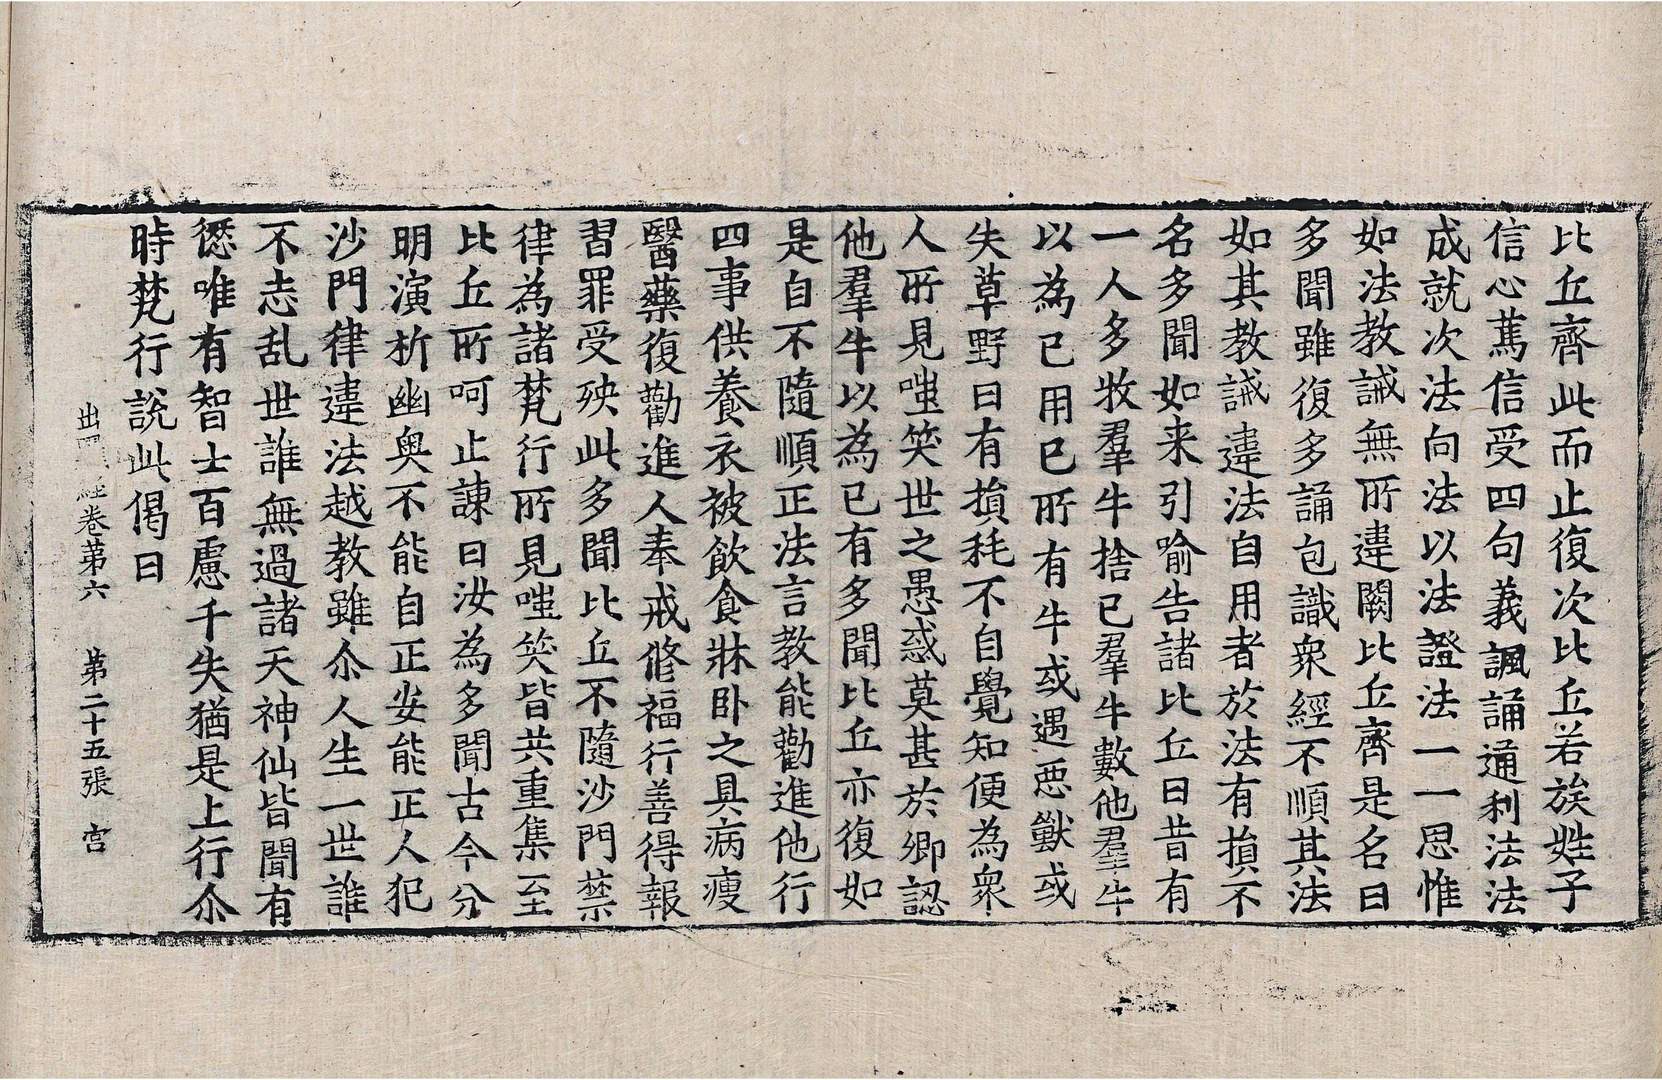 比丘齊此而止復次比丘若族姓子
信心篤信受四句義諷誦通利法法
成就次法向法以法證法一一思惟
如法教誡無所違闕比丘齊是名曰
多聞雖復多誦包識衆經不順其法
如其教誡違法自用者於法有損不
名多聞如来引喻告諸比丘曰昔有
一人多牧羣牛捨已羣牛數他羣牛
以為已用已所有牛或遇惡獸或
失草野日有損耗不自覺知便為衆
人所見嗤笑世之愚惑莫甚於卿認
他羣牛以為已有多聞比丘亦復如
是自不隨順正法言教能勸進他行
四事供養衣被飲食牀卧之具病瘦
醫藥復勸進人奉戒修福行善得報
習罪受殃此多聞比丘不隨沙門禁
律為諸梵行所見嗤笑皆共重集至
比丘所呵止諫曰汝為多聞古今分
明演析幽奥不能自正安能正人犯
沙門律違法越教雖尒人生一世誰
不志乱世誰無過諸天神仙皆聞有
愆唯有智士百慮千失猶是上行尒
時梵行說此偈曰
出 經卷第六 第二十五張 宫